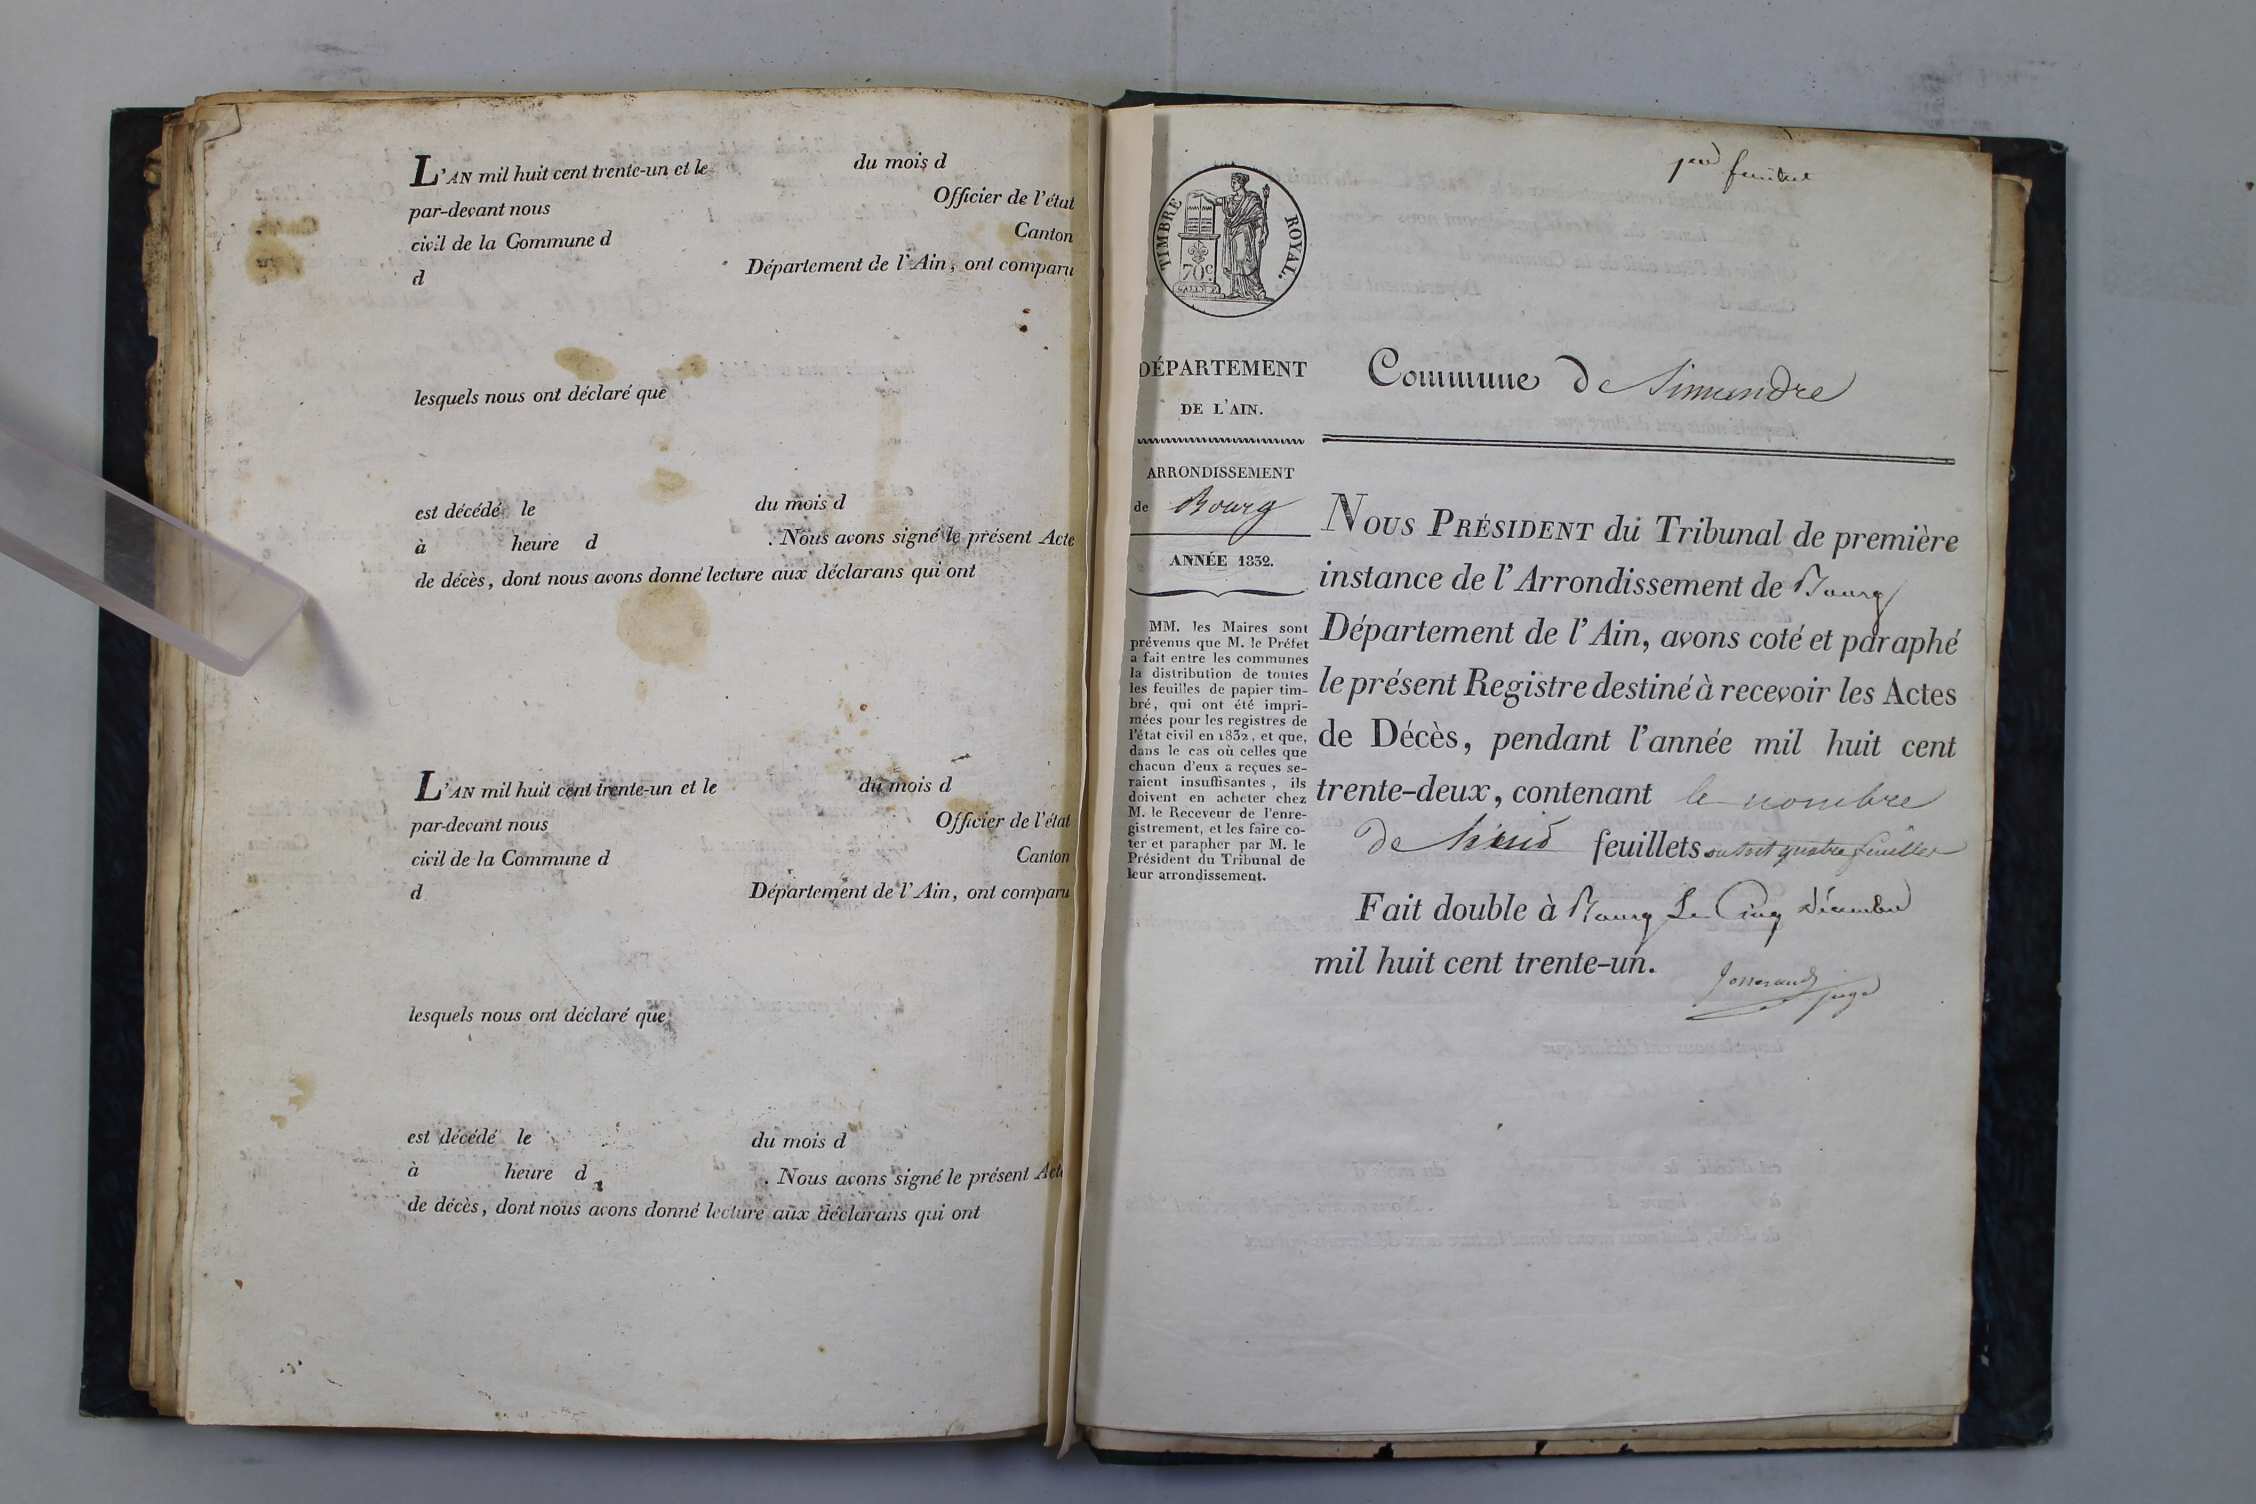 L'AN mil huit cent trente-un et le du mois d
par-devant nous Officier de l'état
civil de la Commune d Canton
d Département de l'Ain, ont comparu
lesquels nous ont déclaré que
est décédé le du mois d
à heure d . Nous avons signé le présent Acte
de décès, dont nous avons donné lecture aux déclarans qui ont
L'AN mil huit cent trente-un et le du mois d
par-devant nous Officier de l'état
civil de la Commune d Canton
d Département de l'Ain, ont comparu
lesquels nous ont déclaré que
est décédé le du mois d
à heure d . Nous avons signé le présent Acte
de décès, dont nous avons donné lecture aux déclarans qui ont
feuillet
TIMBRE ROYAL.
70 c.
DÉPARTEMENT
DE L'AIN.
ARRONDISSEMENT
de Bourg
ANNÉE 1832.
MM. les Maires sont
prévenus que M. le Préfet
a fait entre les communes
la distribution de toutes
les feuilles de papier tim-
bré, qui ont été impri-
mées pour les registres de
l'état civil en 1832, et que,
dans le cas où celles que
chacun d'eux a reçues se-
raient insuffisantes, ils
doivent en acheter chez
M. le Receveur de l'enre-
gistrement, et les faire co-
ter et parapher par M. le
Président du Tribunal de
leur arrondissement.
Commune de Simandre
NOUS PRÉSIDENT du Tribunal de première
instance de l'Arrondissement de Bourg
Département de l'Ain, avons coté et paraphé
le présent Registre destiné à recevoir les Actes
de Décès, pendant l'année mil huit cent
trente-deux, contenant le nombre
de feuillets quatre feuilles
Fait double à Bourg Le Cinq décembre
mil huit cent trente-un.
juge